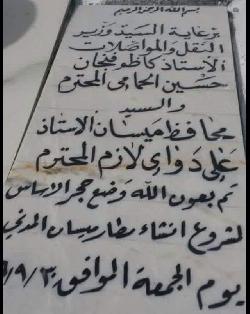 بسم الله الرحمن الرحيم
برعاية السيد وزير
النقل والمواصلات
الأستاذ كاظم فنجان
حسين الحمامي المحترم
والسيد
محافظ ميسان الاستاذ
علي دواي لازم المحترم
تم بعون الله وضع حجر الاساس
لمشروع انشاء مطار ميسان المدني
يوم الجمعة الموافق ٩/٣٠/